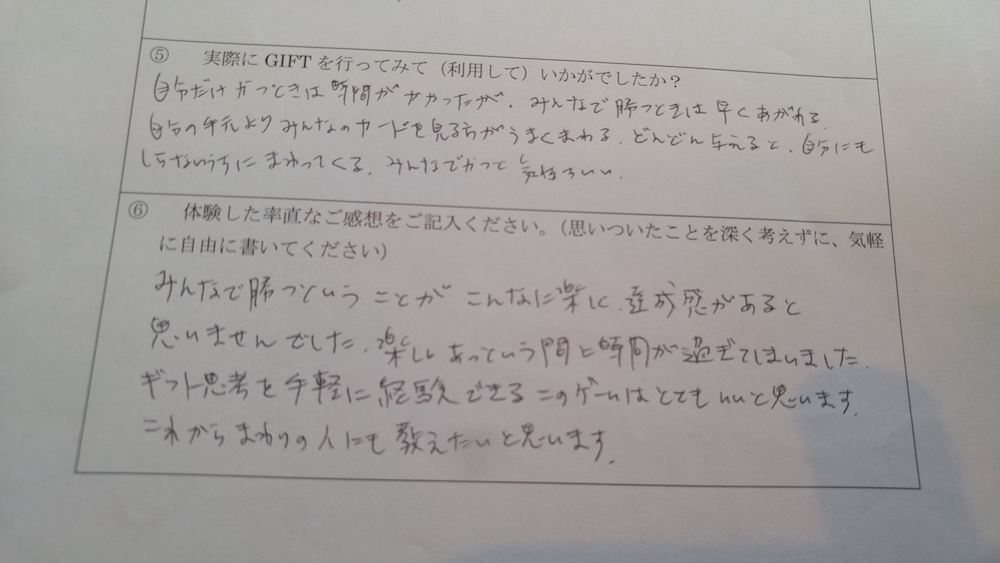 ⑤ 実際に GIFT を行ってみて（利用して）いかがでしたか？
自分だけかつときは時間がかかったが、みんなで勝つときは早くあがれる.
自分の手元よりみんなのカードを見る方がうまくまわる. どんどん与えると、自分にも
しらないうちにまわってくる. みんなでかつと気持ちいい.
⑥ 体験した率直なご感想をご記入ください。（思いついたことを深く考えずに、気軽
に自由に書いてください）
みんなで勝つということがこんなに楽しく、達成感があると
思いませんでした. 楽しくあっという間に時間が過ぎてしまいました.
ギフト思考を手軽に経験できるこのゲームはとてもいいと思います.
これからまわりの人にも教えたいと思います.